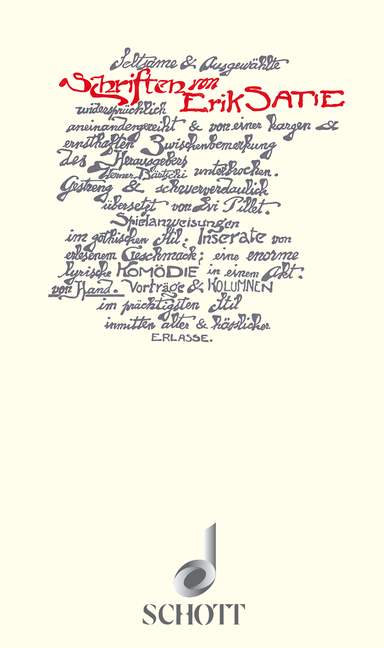 Seltsame & Ausgewählte
Schriften von
Erik SATIE
widersprüchlich
aneinandergereiht & von einer kargen &
ernsthaften Zwischenbemerkung
des Herausgebers
Werner Bärtschi unterbrochen.
Gestreng & schwerverdaulich
übersetzt von Evi Pillet.
Spielanweisungen
im gothischen Stil: Inserate von
erlesenem Geschmack; eine enorme
lyrische KOMÖDIE in einem Akt.
von Hand. Vorträge & KOLUMNEN
im prächtigsten Stil
inmitten alter & hässlicher
ERLASSE.
SCHOTT